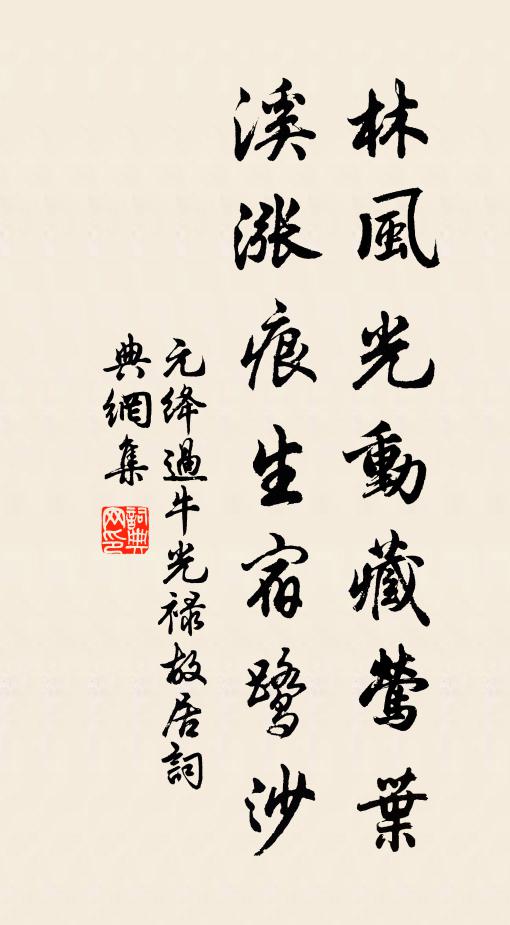 林風光動藏鶯葉
溪漲痕生宿鷺沙
元絳過牛光祿故居詞
典網集
詞典
网印